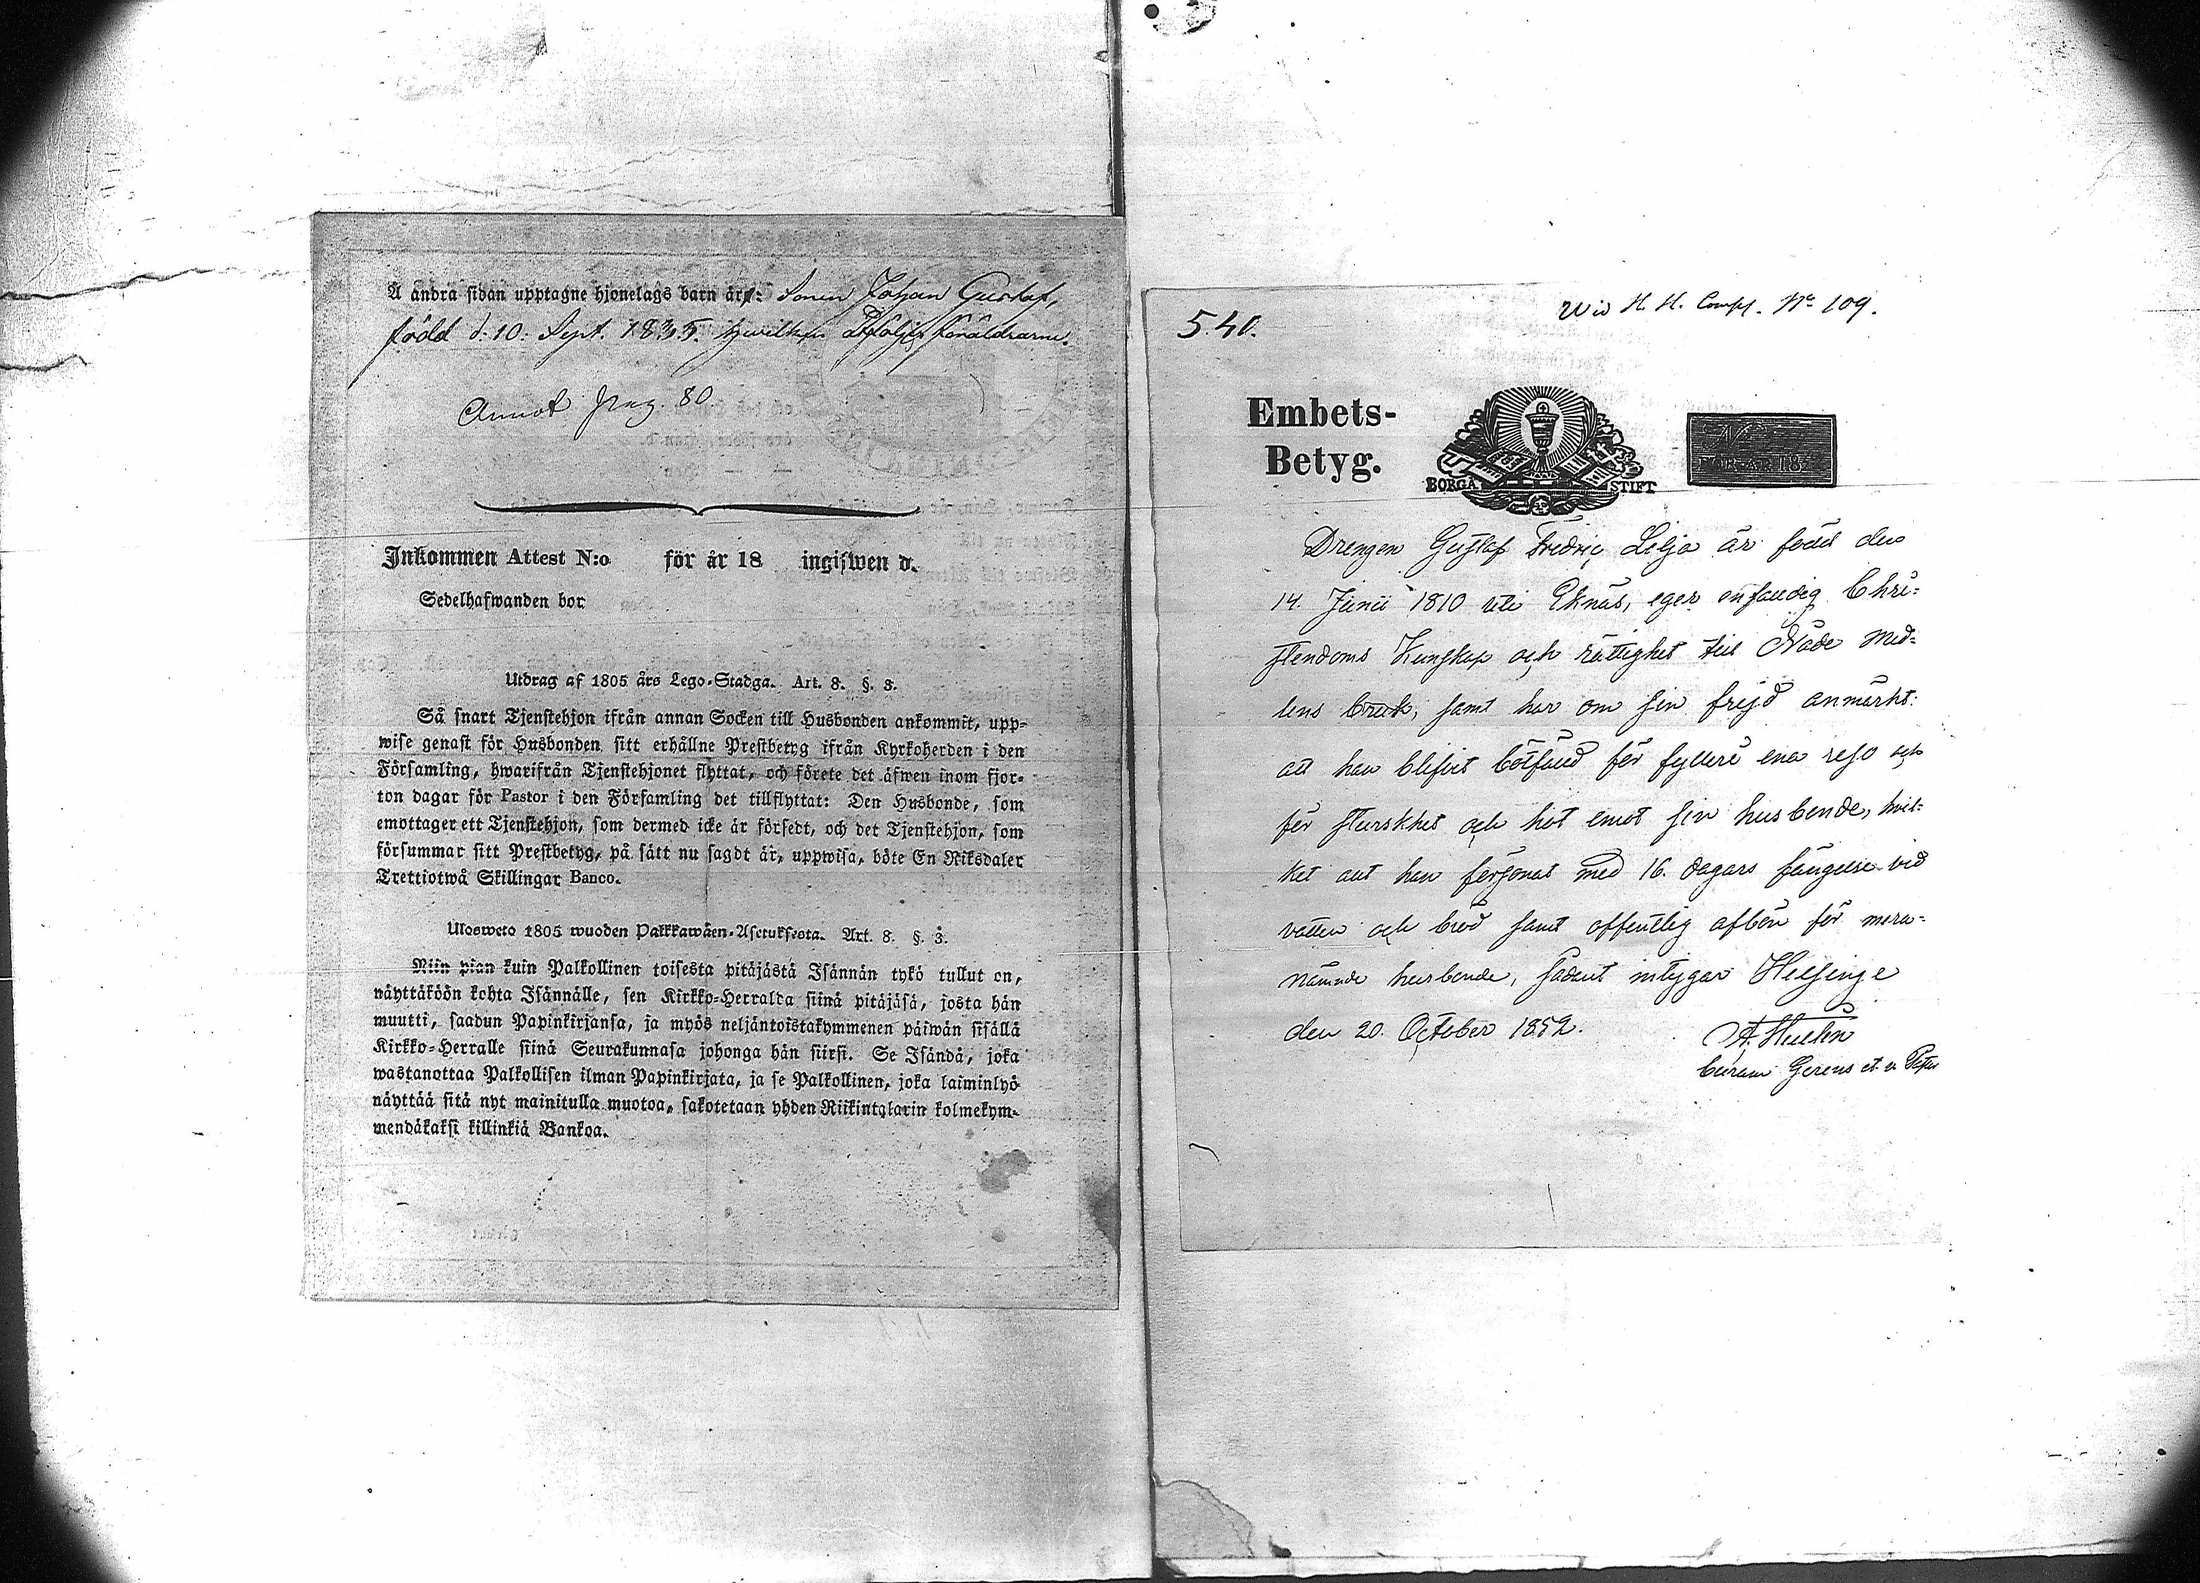 Å andra sidan upptagne hjonelags barn är: Sonen Johan Gustaf,
född d. 10. Sept. 1835. hwilken åtföljer föräldrarne.
Annot. pag. 80
Inkommen Attest N:o för år 18 ingifwen d.
Sedelhafwanden bor
Utdrag af 1805 års Lego-Stadga. Art. 8. §. 3.
Så snart Tjenstehjon ifrån annan Socken till Husbonden ankommit, upp-
wise genast för Husbonden sitt erhållne Prestbetyg ifrån Kyrkoherden i den
Församling, hwarifrån Tjenstehjonet flyttat, och förete det äfwen inom fjor-
ton dagar för Pastor i den Församling det tillflyttat: Den Husbonde, som
emottager ett Tjenstehjon, som dermed icke är försedt, och det Tjenstehjon, som
försummar sitt Prestbetyg, på sätt nu sagdt är, uppwisa, böte En Riksdaler
Trettiotwå Skillingar Banco.
Ulosweto 1805 wuoden Palkkawäen-Asetuksesta. Art. 8. §. 3.
Niin pian kuin Palkollinen toisesta pitäjästä Isännän tykö tullut on,
näyttäköön kohta Isännälle, sen Kirkko-Herralda siinä pitäjäsä, josta hän
muutti, saadun Papinkirjansa, ja myös neljäntoistakymmenen päiwän sisällä
Kirkko-Herralle siinä Seurakunnasa johonga hän siirsi. Se Isändä, joka
wastanottaa Palkollisen ilman Papinkirjata, ja se Palkollinen, joka laiminlyö
näyttää sitä nyt mainitulla muotoa, sakotetaan yhden Riikintalarin kolmekym-
mendäkaksi killinkiä Bankoa.
5.40.
Wid H. H. Compl. No 109.
Embets-
Betyg.
BORGÅ STIFT
No
FÖR ÅR 18
Drengen Gustaf Fredric Lilja är född den
14. Junii 1810 uti Eknäs, eger enfaldig Chri-
stendoms Kunskap och rättighet till Nåde med-
lens bruk, samt har om sin frejd anmärkt:
att han blifvit bötfäld för fylleri ena resa och
för sturskhet och hot emot sin husbonde, hvil-
ket allt han försonat med 16. dagars fängelse vid
vatten och bröd samt offentlig afbön för mera-
nämnde husbonde, sådant intygar Helsinge
den 20. October 1852.
Curam Gerens